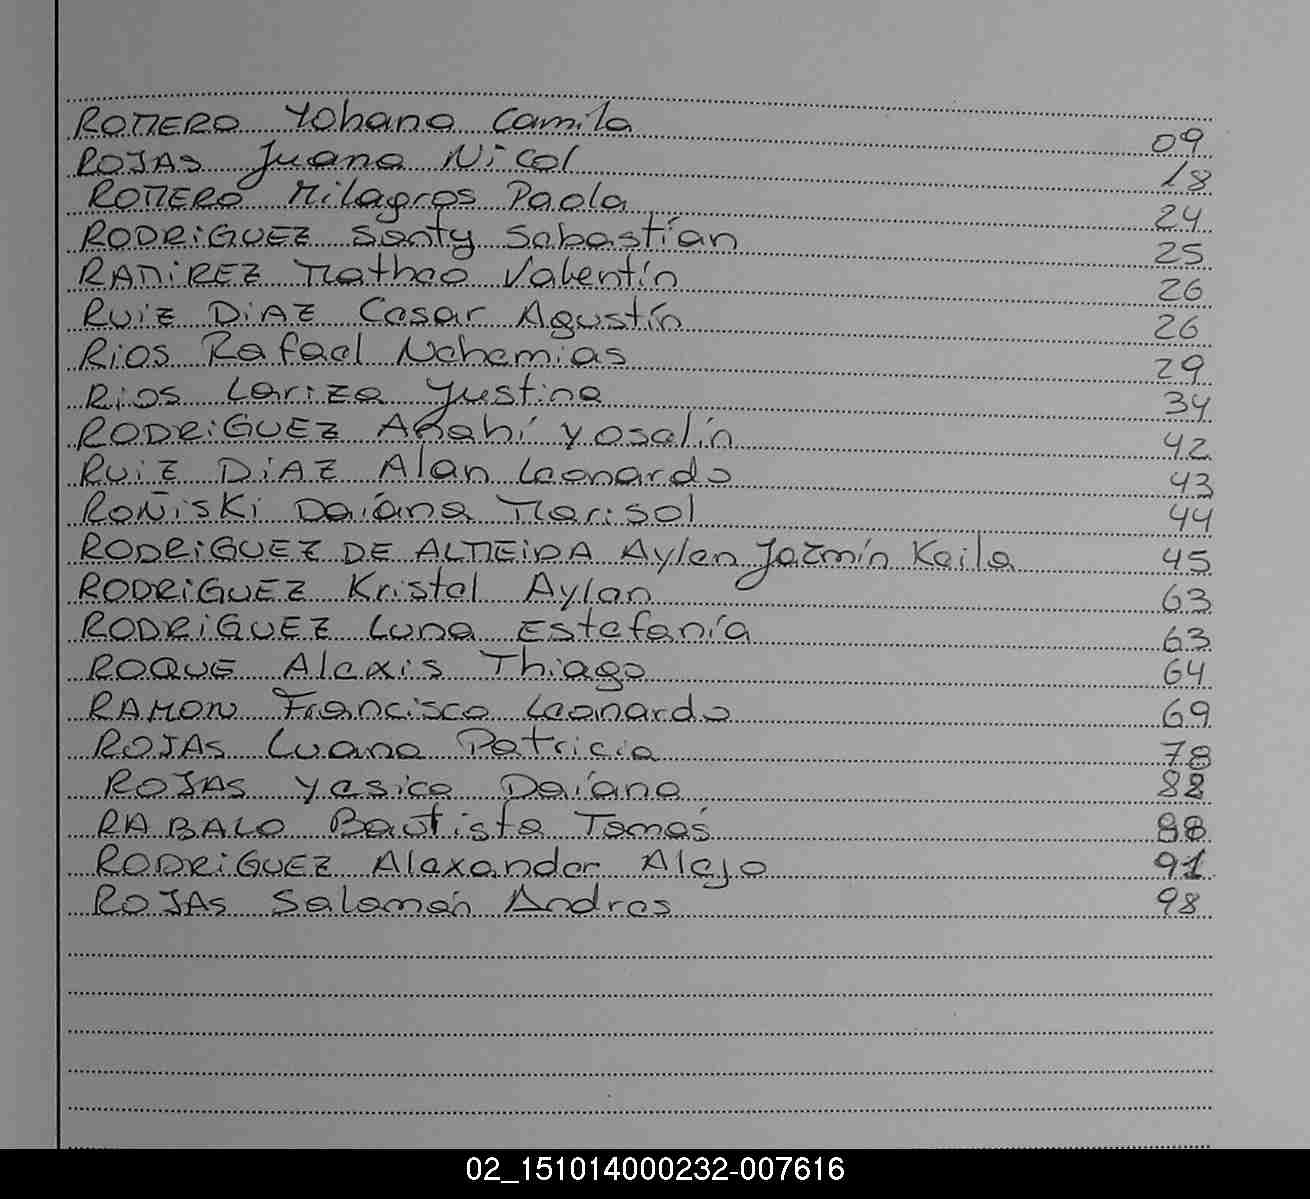 ROMERO Yohana Camila 09
ROJAS Juana Nicol 18
ROMERO Milagros Paola 24
RODRiGUEZ Santy Sebastían 25
RAMiREZ Matheo Valentín 26
RUiZ DiAZ Cesar Agustín 26
RiOS Rafael Nehemias 29
RiOS Lariza Yustina 34
RODRiGUEZ Anahí Yoselín 42
RUiZ DiAZ Alan Leonardo 43
ROÑiSKi Daiána Marisol 44
RODRiGUEZ DE ALMEiDA Aylen Jazmín Keila 45
RODRiGUEZ Kristel Aylen 63
RODRiGUEZ Luna Estefanía 63
ROQUE Alexis Thiago 64
RAMON Francisco Leonardo 69
ROJAS Luana Patricia 78
ROJAS Yesica Daiána 88
RABALO Bautista Tomás 88
RODRiGUEZ Alexander Alejo 91
ROJAS Salomón Andres 98
02_151014000232-007616